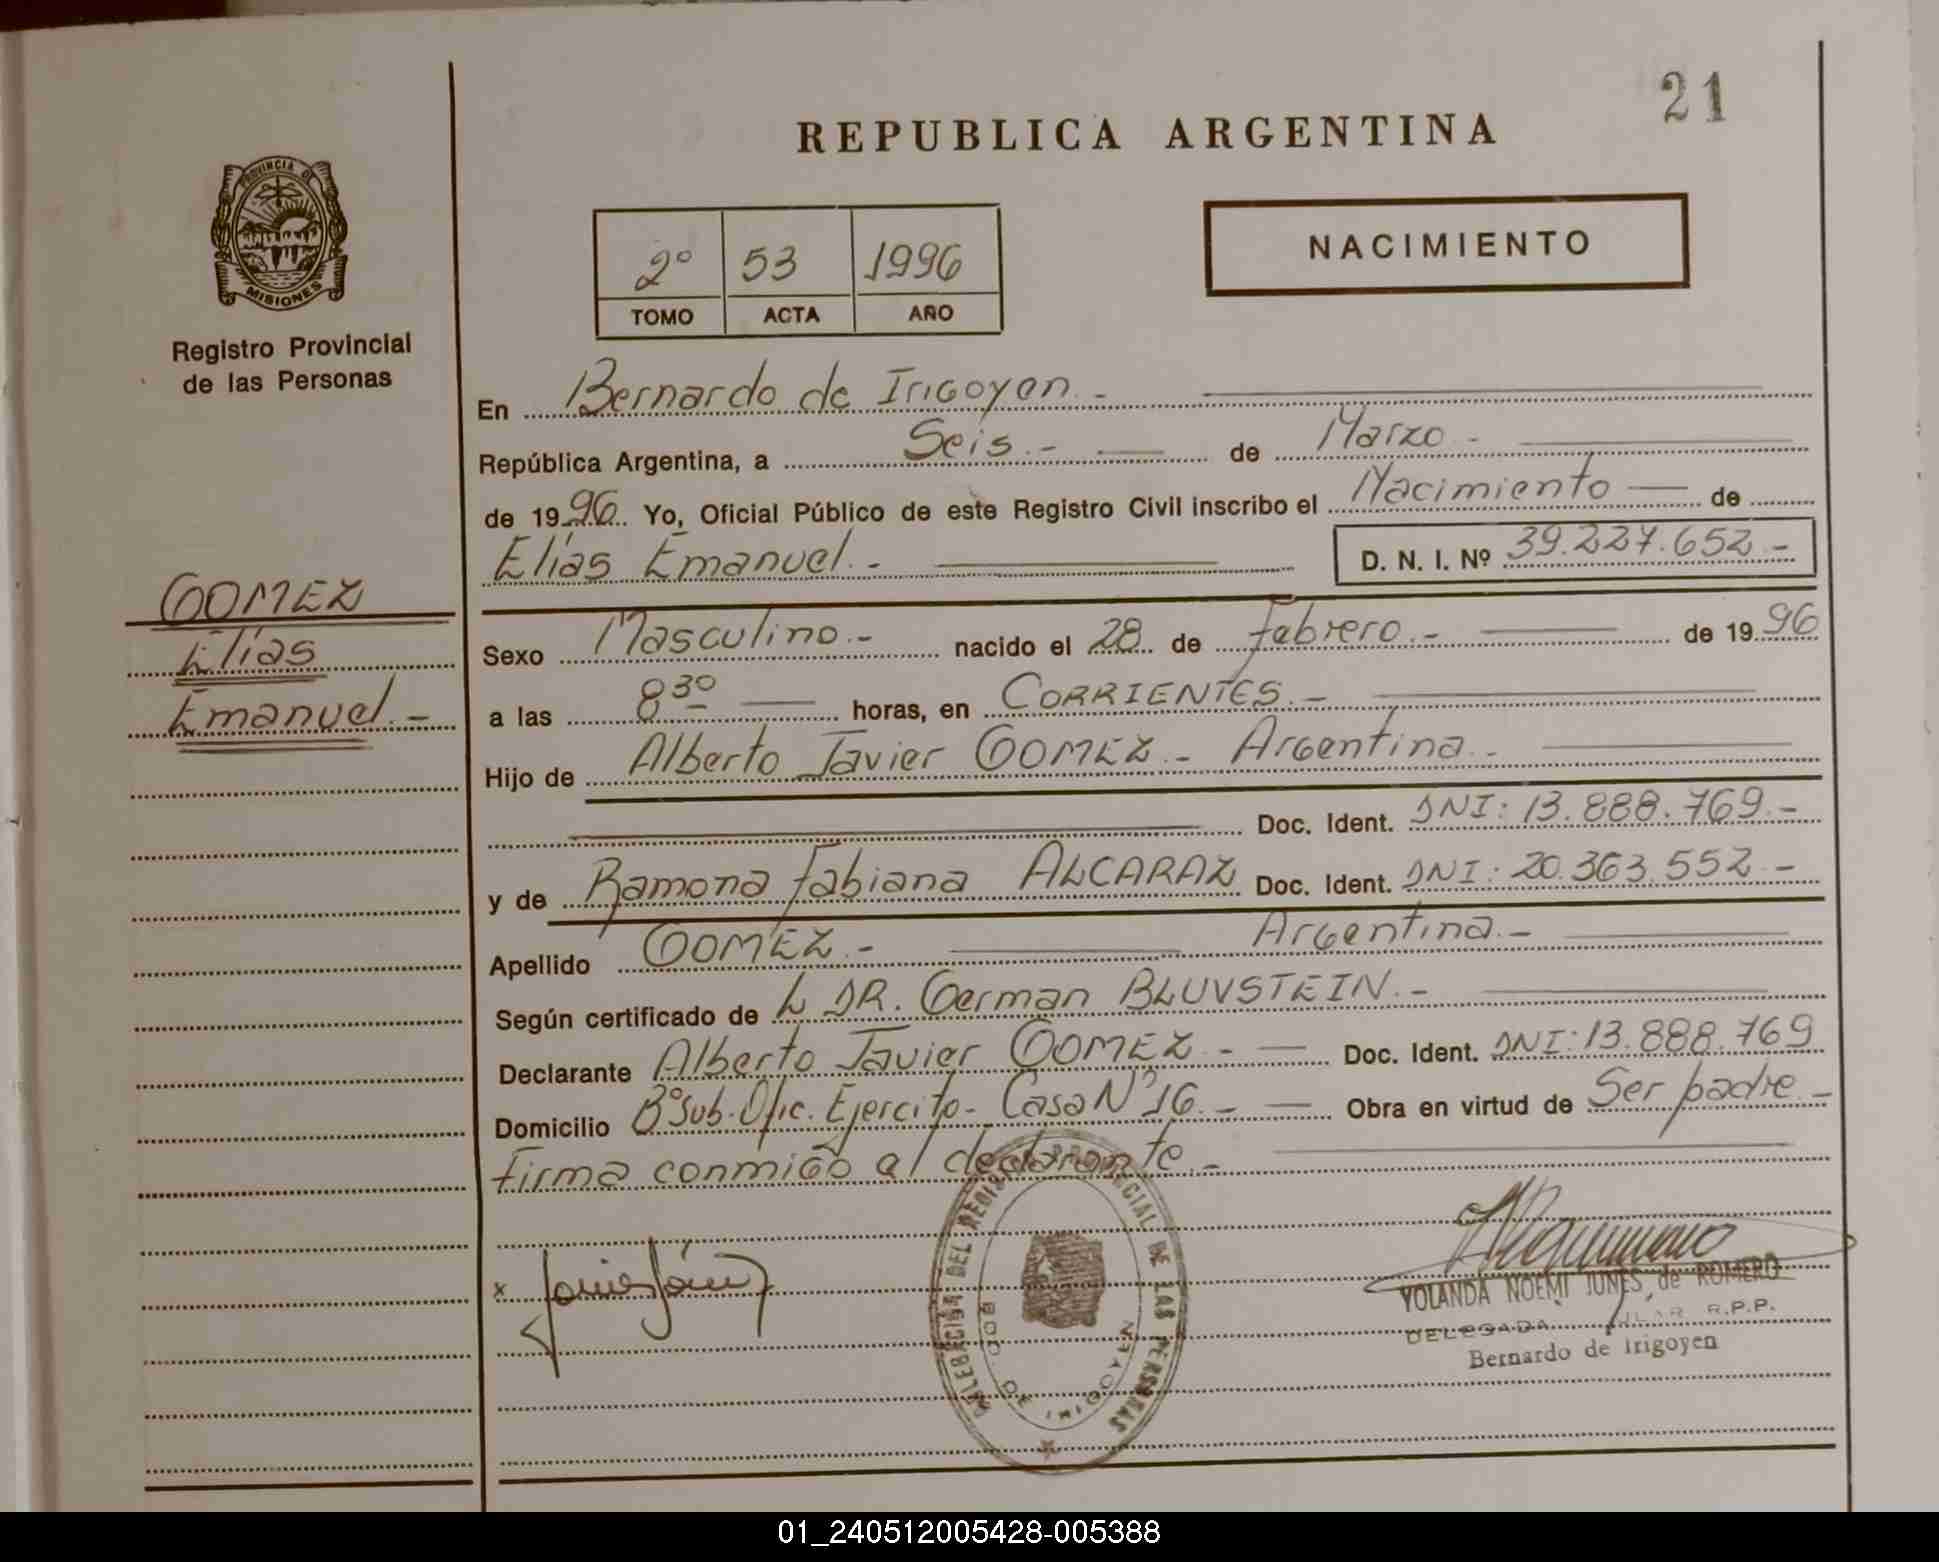 21
REPUBLICA ARGENTINA
PROVINCIA DE
MISIONES
Registro Provincial
de las Personas
2º 53 1996
TOMO ACTA AÑO
NACIMIENTO
En Bernardo de Irigoyen.-
República Argentina, a Seis.- de Marzo.-
de 1996. Yo, Oficial Público de este Registro Civil inscribo el Nacimiento de
Elías Emanuel.- D. N. I. Nº 39.227.652.-
GOMEZ
Elías
Emanuel.-
Sexo Masculino.- nacido el 28 de febrero.- de 1996
a las 8 30 horas, en CORRIENTES.-
Hijo de Alberto Javier GOMEZ.- Argentina.-
Doc. Ident. DNI: 13.888.769.-
y de Ramona Fabiana ALCARAZ Doc. Ident. DNI: 20.363.552.-
Apellido GOMEZ.- Argentina.-
Según certificado de L DR. German BLUVSTEIN.-
Declarante Alberto Javier GOMEZ.- Doc. Ident. DNI: 13.888.769
Domicilio Bº Sub. Ofic. Ejercito- Casa Nº 16.- Obra en virtud de Ser padre.-
Firma conmigo al declarante.-
DELEGACION DEL REGISTRO PROVINCIAL DE LAS PERSONAS
BDO. DE IRIGOYEN
x
YOLANDA NOEMI JUNES de ROMERO
DELEGADA R.P.P.
Bernardo de Irigoyen
01_240512005428-005388